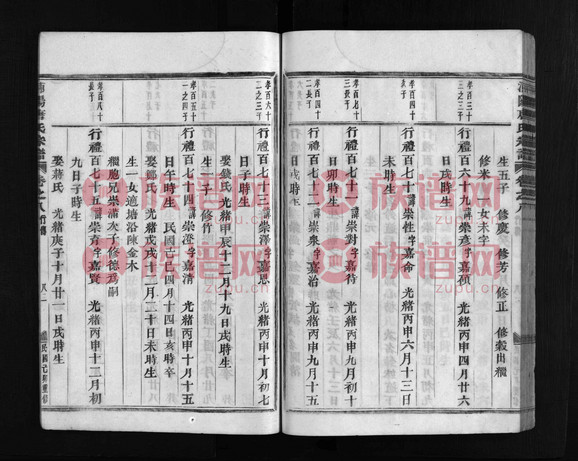 生五子 修慶 修芳 修正 修毅出繼
修米 一女未字
孝百六十一之三子
行禮百六十九 諱崇彥 字嘉碩 光緒丙申四月廿六
日戌時生
孝百四十
行禮百七十 諱崇性 字嘉命 光緒丙申六月十三日
未時生
孝百七十三長子
行禮百七十一 諱崇對 字嘉待 光緒丙申九月初十
日卯時生
孝百四十二長子
行禮百七十二 諱崇泉 字嘉治 光緒丙申九月十五
日戌時生
孝百六十二之三子
行禮百七十三 諱崇澤 字嘉恩 光緒丙申十月初七
日子時生
娶錢氏 光緒甲辰十二月十九日戌時生
生一子 修竹
孝百五十一之四子
行禮百七十四 諱崇濤 字嘉清 光緒丙申十月十五
日午時生 民國己巳四月十四日亥時卒
娶鄭氏 光緒戊戌十二月二十日未時生
生一女適塘沿陳金木
繼胞兄崇滿次子修德為嗣
孝百八十長子
行禮百七十五 諱崇奇 字嘉賢 光緒丙申十二月初
九日子時生
娶蔣氏 光緒庚子十月廿一日戌時生
族谱网
zupu.cn